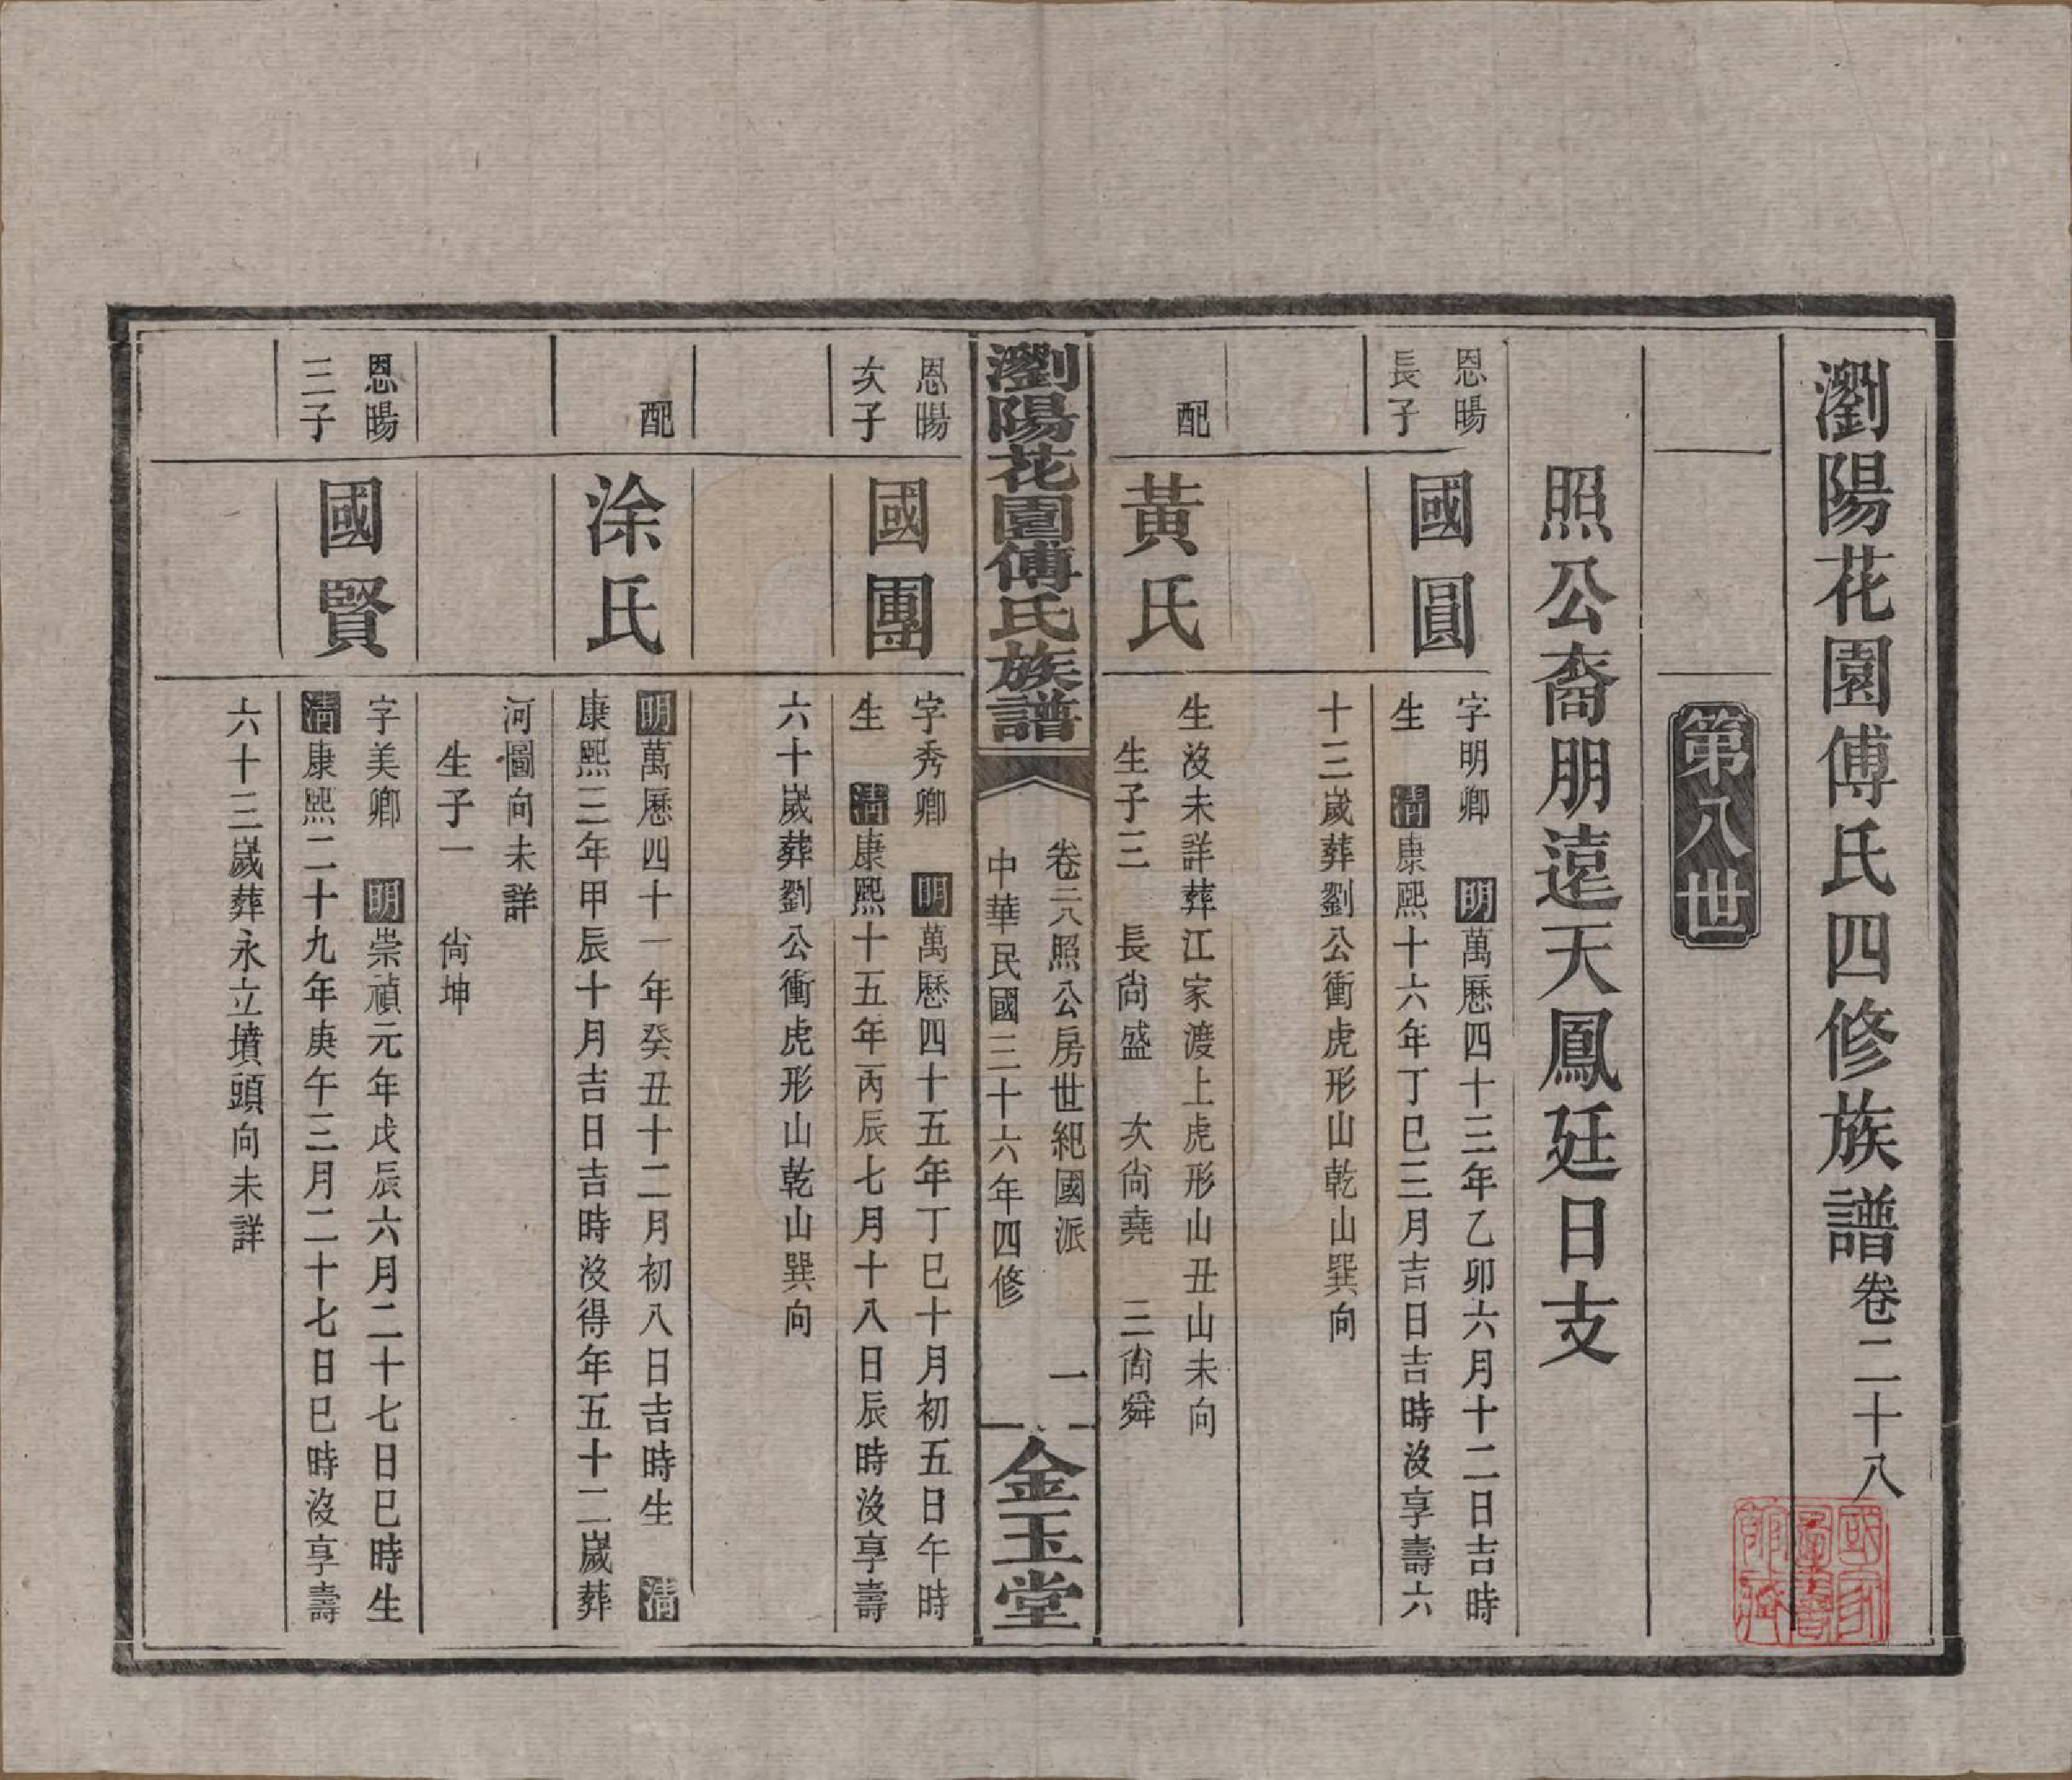 瀏陽花園傅氏四修族譜卷二十八
第八世
照公裔朋遠天鳳廷日支
恩暘
長子
國圓
字明卿 明萬厯四十三年乙卯六月十二日吉時
生 清康熙十六年丁巳三月吉日吉時沒享壽六
十三嵗葬劉公衝虎形山乾山巽向
配
黃氏
生沒未詳葬江家渡上虎形山丑山未向
生子三 長尙盛 次尙堯 三尙舜
瀏陽花園傅氏族譜
卷二八照公房世紀國派 一
中華民國三十六年四修
金玉堂
恩暘
次子
國團
字秀卿 明萬厯四十五年丁巳十月初五日午時
生 清康熙十五年丙辰七月十八日辰時沒享壽
六十嵗葬劉公衝虎形山乾山巽向
配
涂氏
明萬厯四十一年癸丑十二月初八日吉時生 清
康熙三年甲辰十月吉日吉時沒得年五十二嵗葬
河圖向未詳
生子一 尙坤
恩暘
三子
國賢
字美卿 明崇禎元年戊辰六月二十七日巳時生
清康熙二十九年庚午三月二十七日巳時沒享壽
六十三嵗葬永立墳頭向未詳
國家
圖書
館藏